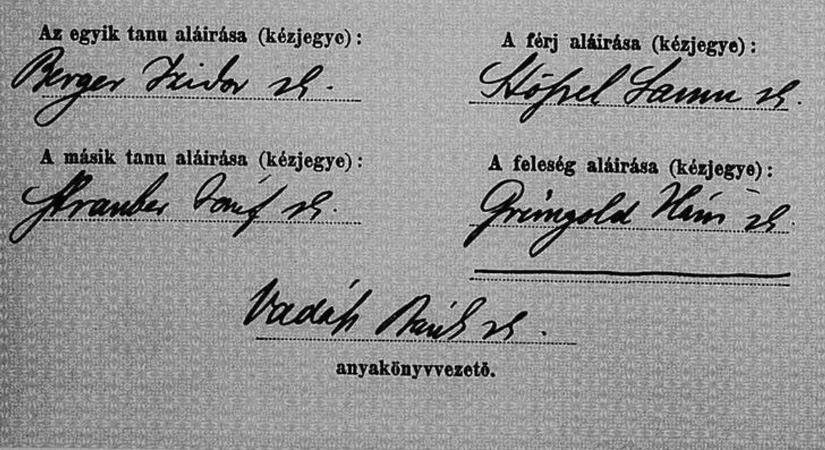 Az egyik tanu aláirása (kézjegye):
Berger Izidor sk.
A férj aláirása (kézjegye):
Stöszel Samu sk.
A másik tanu aláirása (kézjegye):
Strauber sk.
A feleség aláirása (kézjegye):
Grüngold Háni sk.
Vadász sk.
anyakönyvvezető.